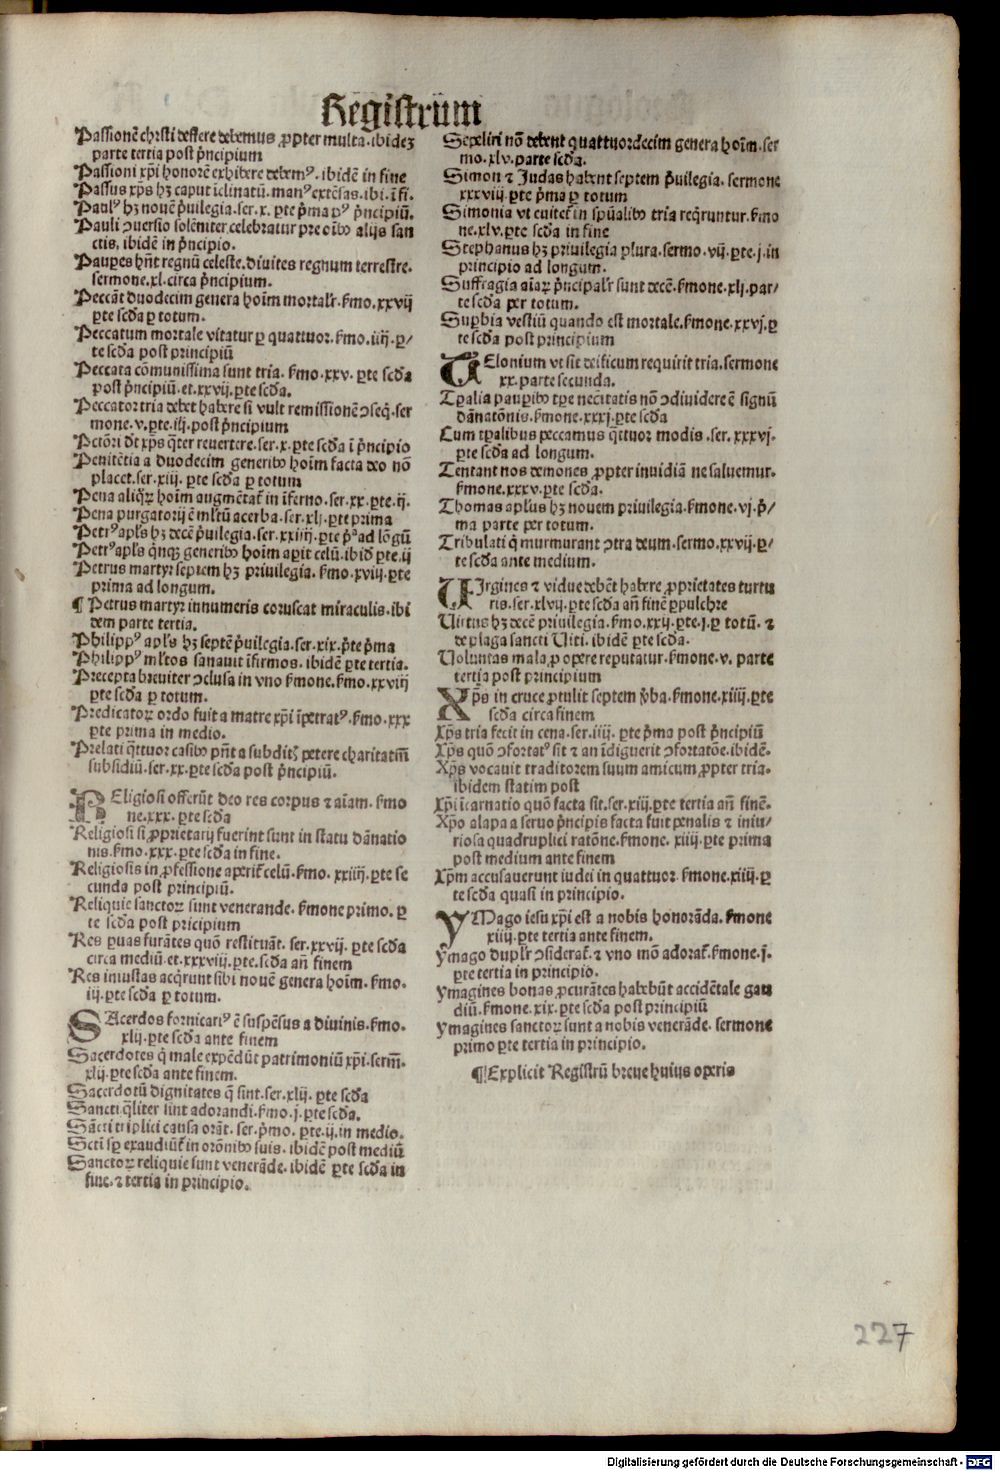 Registrum
Passionē christi deflere debemus ꝓpter multa. ibidez
parte tertia post pͥncipium
Passioni xp̄i honorē exhibere debemꝰ. ibidē in fine
Passus xp̄s hꝫ caput īclinatū. manꝰ extēsas. ibi. ī fi.
Paulꝰ hꝫ nouē pͥuilegia. ser. x. ꝑte pͥma pꝰ pͥncipiū.
Pauli ꝯuersio solēniter celebratur pre oībꝰ alijs san
ctis, ibidē in pͥncipio.
Pauꝑes hn̄t regnū celeste. diuites regnum terrestre.
sermone. xl. circa pͥncipium.
Peccāt duodecim genera hoīm mortalr̄. ẜmo. xxvij
ꝑte scḋa ꝑ totum.
Peccatum mortale vitatur ꝑ quattuor. ẜmo. iiij. ꝑ/
te scḋa post principiū
Peccata cōmunissima sunt tria. ẜmo. xxv. ꝑte scḋa
post pͥncipiū. et. xxvij. ꝑte scḋa.
Peccator tria debet habere si vult remissionē ꝯseq̄. ser
mone. v. ꝑte. iij. post pͥncipium
Pctōri dt̄ xp̄s qͣter reuertere. ser. x. ꝑte scḋa ī pͥncipio
Penitētia a duodecim generibꝰ hoīm facta deo nō
placet. ser. xiij. ꝑte scḋa ꝑ totum
Pena aliqͦꝝ hoīm augmētat̄ in īferno. ser. xx. ꝑte. ij.
Pena purgatorij ē ml̄tū acerba. ser. xlj. ꝑte prima
Petrꝰ apl̄s hꝫ decē pͥuilegia. ser. xxiiij. ꝑte pͥᵃ ad lōgū
Petrꝰ apl̄s qͥnqꝫ generibꝰ hoīm apit celū. ibid̄ ꝑte. ij
Petrus martyr septem hꝫ priuilegia. ẜmo. xviij. ꝑte
prima ad longum.
¶ Petrus martyr innumeris coruscat miraculis. ibi
dem parte tertia.
Philippꝰ apl̄s hꝫ septē pͥuilegia. ser. xix. ꝑte pͥma
Philippꝰ ml̄tos sanauit īfirmos. ibidē ꝑte tertia.
Precepta breuiter ꝯclusa in vno ẜmone. ẜmo. xxviij
ꝑte scḋa ꝑ totum.
Predicatoꝝ ordo fuit a matre xp̄i īpetratꝰ. ẜmo. xxx
ꝑte prima in medio.
Prelati qͣttuor casibꝰ pn̄t a subditꝭ petere charitatiūū
subsidiū. ser. xx. ꝑte scḋa post pͥncipiū.
REligiosi offerūt deo res corpus ⁊ aīam. ẜmo
ne. xxx. ꝑte scḋa
Religiosi si ꝓprietarij fuerint sunt in statu dānatio
nis. ẜmo. xxx. ꝑte scḋa in fine.
Religiosis in ꝓfessione aperit̄ celū. ẜmo. xxiiij. ꝑte se
cunda post principiū.
Reliquie sanctoꝝ sunt venerande. ẜmone primo. ꝑ
te scḋa post pricipium
Res ꝑuas furātes quō restituāt. ser. xxvij. ꝑte scḋa
circa mediū. et. xxxviij. ꝑte. scḋa an̄ finem
Res iniustas acqͥrunt sibi nouē genera hoīm. ẜmo.
iij. ꝑte scḋa ꝑ totum.
SAcerdos fornicariꝰ ē suspēsus a diuinis. ẜmo.
xlij. ꝑte scḋa ante finem
Sacerdotes qͥ male expēdūt patrimoniū xp̄i. serm̄.
xlij. ꝑte scḋa ante finem.
Sacerdotū dignitates q̄ sint. ser. xlij. ꝑte scḋa
Sancti qͣliter sint adorandi. ẜmo. j. ꝑte scḋa.
Sācti triplici causa orāt. ser. pͥmo. ꝑte. ij. in medio.
Scti sꝑ exaudiūt̄ in orōnibꝰ suis. ibidē post mediū
Sanctoꝝ reliquie sunt venerāde. ibidē ꝑte scḋa in
fine. ⁊ tertia in principio.
Sepeliri nō debent quattuordecim genera hoīm. ser
mo. xlv. parte scḋa.
Simon ⁊ Judas habent septem pͥuilegia. sermone
xxxviij. ꝑte pͥma ꝑ totum
Simonia vt euitet̄ in spūalibꝰ tria reqͥruntur. ẜmo
ne. xlv. ꝑte scḋa in fine
Stephanus hꝫ priuilegia plura. sermo. vij. ꝑte. j. in
principio ad longum.
Suffragia aīaꝝ pͥncipalr̄ sunt decē. ẜmone. xlj. par/
te scḋa per totum.
Suꝑbia vestiū quando est mortale. ẜmone. xxvj. ꝑ
te scḋa post principium
TElonium vt sit deificum requirit tria. sermone
xx. parte secunda.
Tꝑalia pauꝑibꝰ tꝑe necitatis nō ꝯdiuidere ē signū
dānatōnis. ẜmone. xxxj. ꝑte scḋa
Cum tꝑalibus peccamus qͣttuor modis. ser. xxxvj.
ꝑte scḋa ad longum.
Tentant nos demones ꝓpter inuidiā ne saluemur.
ẜmone. xxxv. ꝑte scḋa.
Thomas apl̄us hꝫ nouem priuilegia. ẜmone. vj. pͥ/
ma parte per totum.
Tribulati qͥ murmurant ꝯtra deum. sermo. xxvij. ꝑ/
te scḋa ante medium.
VIrgines ⁊ vidue debēt habere ꝓprietates turtu
ris. ser. xlvij. ꝑte scḋa an̄ finē ꝑpulchre
Vitus hꝫ decē priuilegia. ẜmo. xxij. ꝑte. j. ꝑ totū. ⁊
de plaga sancti Viti. ibidē ꝑte scḋa.
Voluntas mala ꝓ opere reputatur. ẜmone. v. parte
tertia post principium
Xp̄s in cruce ꝓtulit septem ꝟba. ẜmone. xiiij. ꝑte
scḋa circa finem
Xp̄s tria fecit in cena. ser. iiij. ꝑte pͥma post pͥncipiū
Xp̄s quō ꝯfortatꝰ sit ⁊ an īdiguerit ꝯfortatōe. ibidē.
Xp̄s vocauit traditorem suum amicum ꝓpter tria.
ibidem statim post
Xp̄i īcarnatio quō facta sit. ser. xiij. ꝑte tertia an̄ finē.
Xp̄o alapa a seruo pͥncipis facta fuit penalis ⁊ iniu/
riosa quadruplici ratōne. ẜmone. xiiij. ꝑte prima
post medium ante finem
Xp̄m accusauerunt iudei in quattuor. ẜmone. xiiij. ꝑ
te scḋa quasi in principio.
YMago iesu xp̄i est a nobis honorāda. ẜmone
xiij. ꝑte tertia ante finem.
Ymago duplr̄ ꝯsiderat̄. ⁊ vno mō adorat̄. ẜmone. j.
ꝑte tertia in principio.
Ymagines bonas ꝓcurātes habebūt accidētale gau
diū. ẜmone. xix. ꝑte scḋa post principiū
Ymagines sanctoꝝ sunt a nobis venerāde. sermone
primo ꝑte tertia in principio.
¶ Explicit Registrū breue huius operis
227
Digitalisierung gefördert durch die Deutsche Forschungsgemeinschaft - DFG